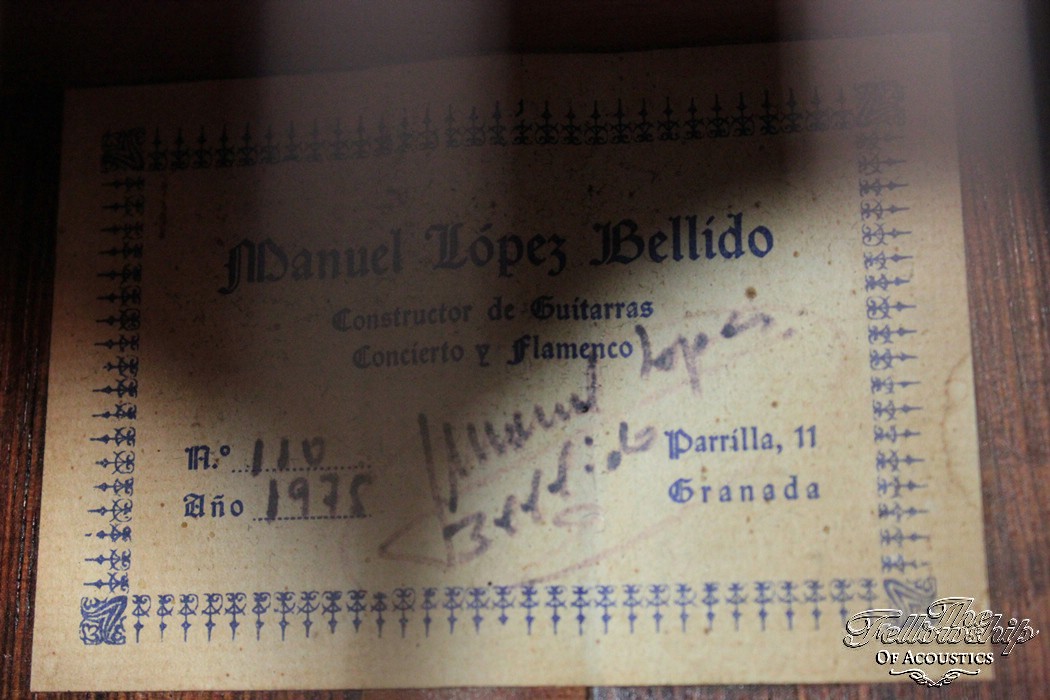 Manuel López Bellido
Constructor de Guitarras
Concierto y Flamenco
Manuel Lopez
Bellido
N.º 110
Año 1975
Parrilla, 11
Granada
The
Fellowship
OF ACOUSTICS